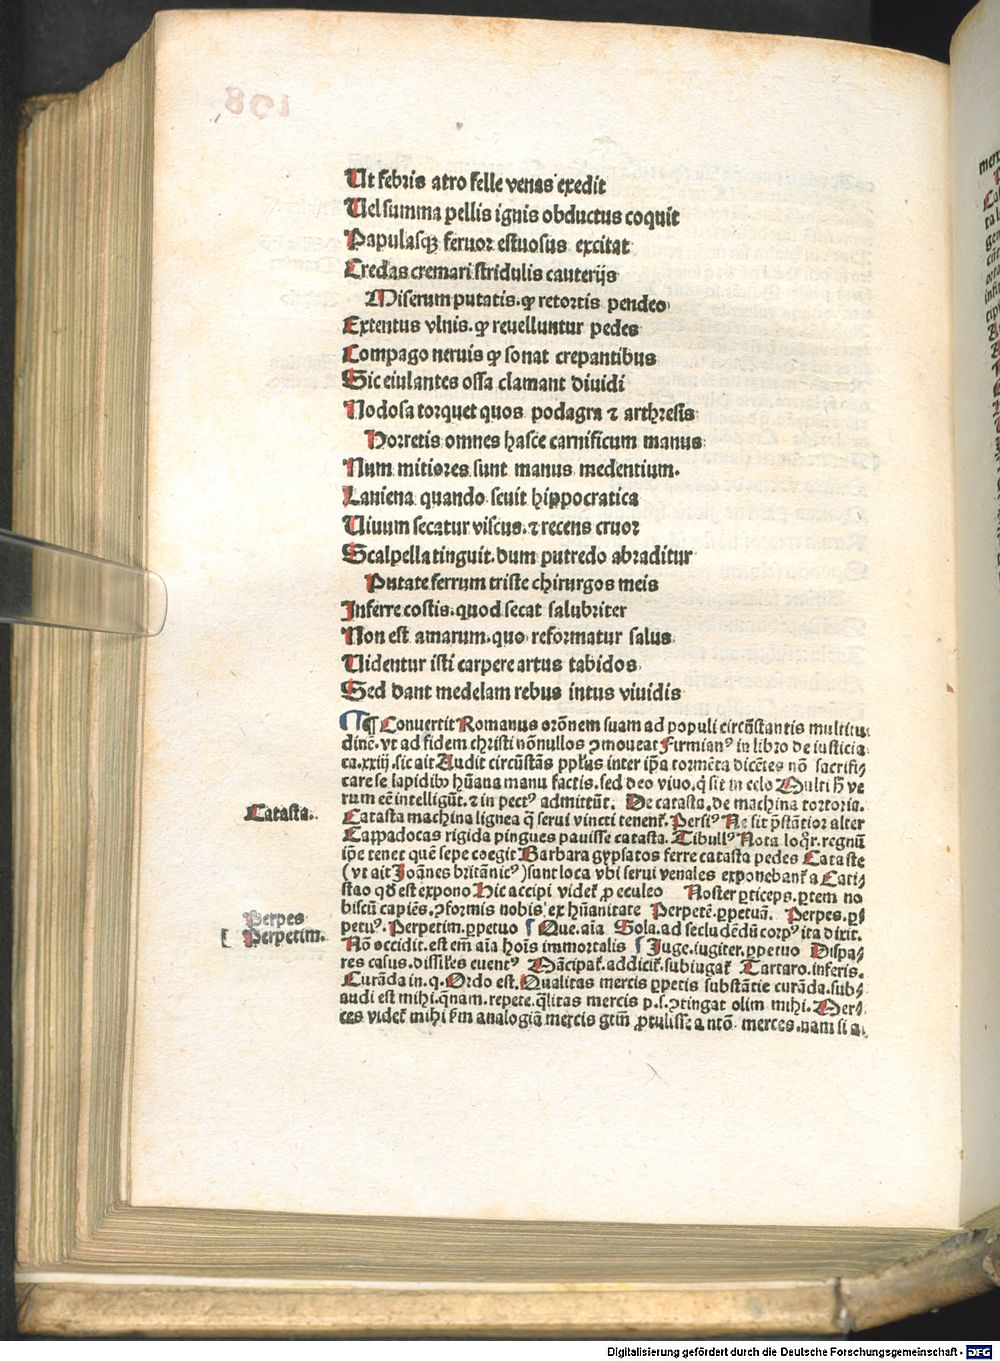 Ut febris atro felle venas exedit
Uel summa pellis ignis obductus coquit
Papulasqꝫ feruor estuosus excitat
Credas cremari stridulis cauterijs
Miserum putatis. ꝙ retortis pendeo
Extentus vlnis. ꝙ reuelluntur pedes
Compago neruis ꝙ sonat crepantibus
Sic eiulantes ossa clamant diuidi
Nodosa torquet quos podagra ⁊ arthresis
Horretis omnes hasce carnificum manus
Num mitiores sunt manus medentium.
Laniena quando seuit hippocratica
Uiuum secatur viscus. ⁊ recens cruor
Scalpella tinguit. dum putredo abraditur
Putate ferrum triste chirurgos meis
Inferre costis. quod secat salubriter
Non est amarum. quo reformatur salus
Uidentur isti carpere artus tabidos
Sed dant medelam rebus intus viuidis
¶ Conuertit Romanus orōnem suam ad populi circūstantis multitu
dinē. vt ad fidem christi nōnullos ꝯmoueat Firmianꝰ in libro de iusticia
ca. xxiij. sic ait Audit circūstās pplus inter ipa tormēta dicētes nō sacrifi
care se lapidibꝰ hūana manu factis. sed deo viuo. q̄ sit in celo Multi h̄ ve
rum eē intelligūt. ⁊ in pectꝰ admittūt. De catasta. de machina tortoria.
Catasta.
Catasta machina lignea q̄ serui vincti tenent᷑. Persiꝰ Ne sit p̄stātior alter
Cappadocas rigida pingues pauisse catasta. Tibullꝰ Nota loq̄r. regnū
ip̄e tenet quē sepe coegit Barbara gypsatos ferre catasta pedes Cataste
(vt ait Joānes britānicꝰ) sunt loca vbi serui venales exponebant᷑ a Cati
stao qd̄ est expono Hic accipi videt᷑ ꝓ eculeo Noster ꝑticeps. ꝑtem no
biscū capiēs. ꝯformis nobis ex hūanitate Perpetē. ꝑpetuā. Perpes. ꝑ
Perpes
petuꝰ. Perpetim. ꝑpetuo Que. aīa Sola. ad secludēdū corpꝰ ita dixit.
Perpetim.
Nō occidit. est em̄ aīa hoīs immortalis Juge. iugiter. ꝑpetuo Dispa
res casus. dissiles euentꝰ Mācipat᷑. addicit᷑. subiugat᷑ Tartaro. inferis.
Curāda in. q. Ordo est. Qualitas mercis ꝑpetis substātie curāda. sub
audi est mihi. q̄nam. repete. q̄litas mercis p. s. ꝯtingat olim mihi. Mer
ces videt᷑ mihi fm̄ analogiā mercis gtm̄ ꝓtulisse a ntō merces. nam si a